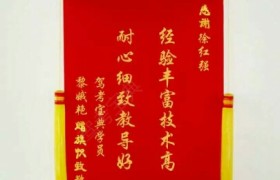 感谢徐红强
经验丰富技术高
耐心细致教导好
驾考宝典学员
黎娥艳